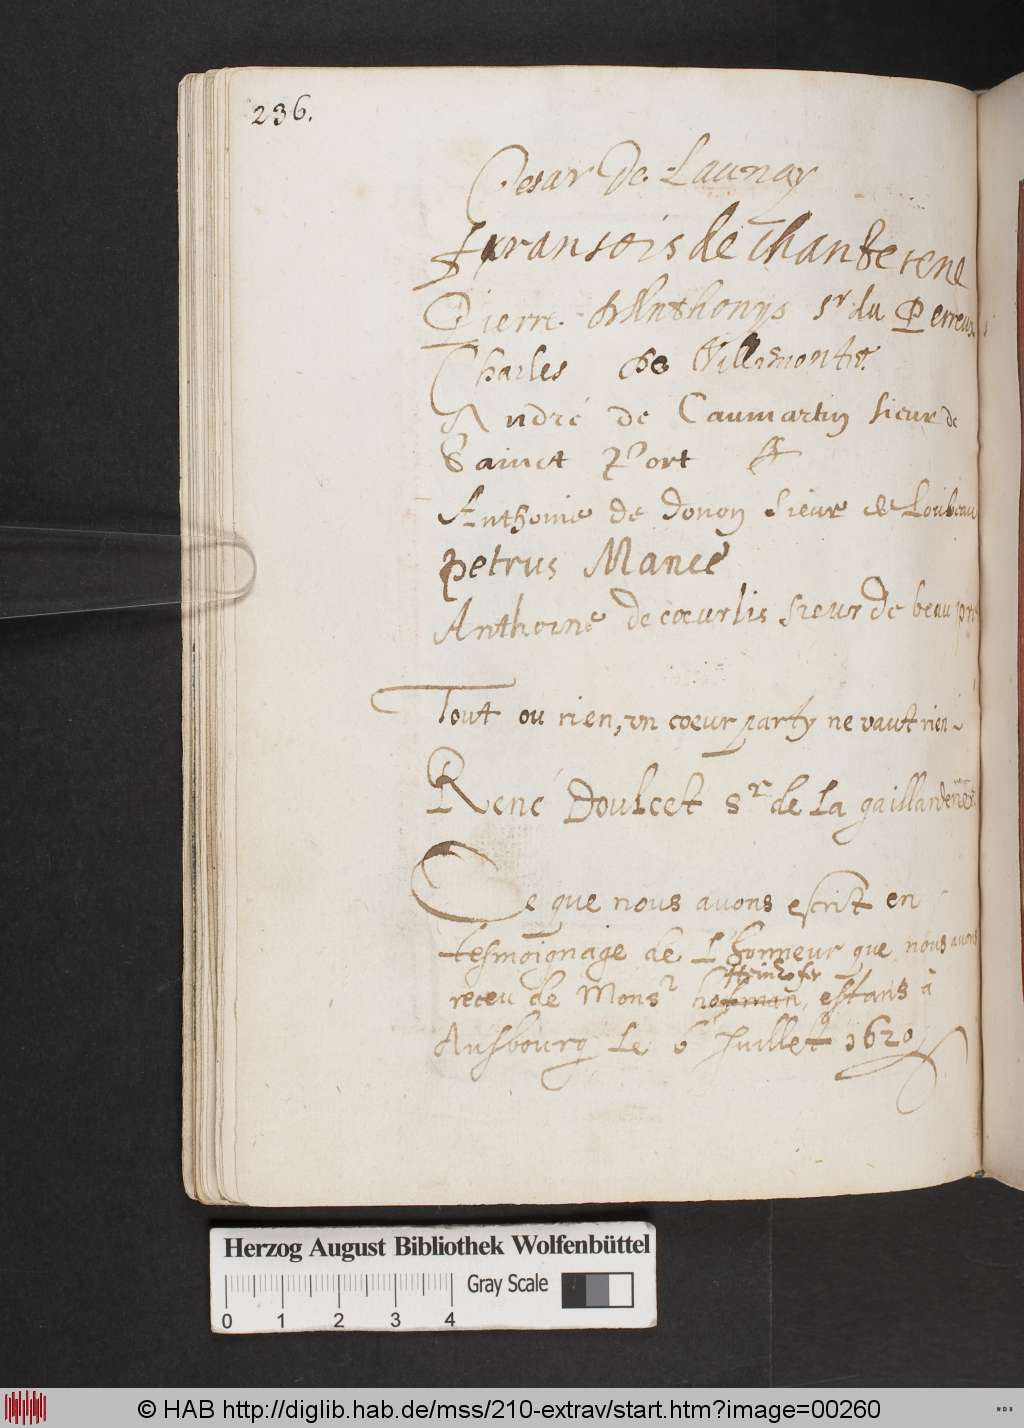 236.
Cesar De Launay
fransois de Chanterene
Pierre Anthonys sr du Perreux
Charles de Villemontee
André de Caumartin sieur de
Sainct Port
Anthoine de Donon sieur de Loubeau
petrus Mance
Anthoine de cœurlis sieur de beau pre
Tout ou rien, un coeur party ne vaut rien
René Doulcet Sr de La gaillarderie
Ce que nous auons escrit en
tesmoignage de L'honneur que nous auons
Heinhofer
receu de Monsr hofman, estans à
Ausbourg Le 6 Juillet 1620
Herzog August Bibliothek Wolfenbüttel
Gray Scale
0 1 2 3 4
© HAB http://diglib.hab.de/mss/210-extrav/start.htm?image=00260